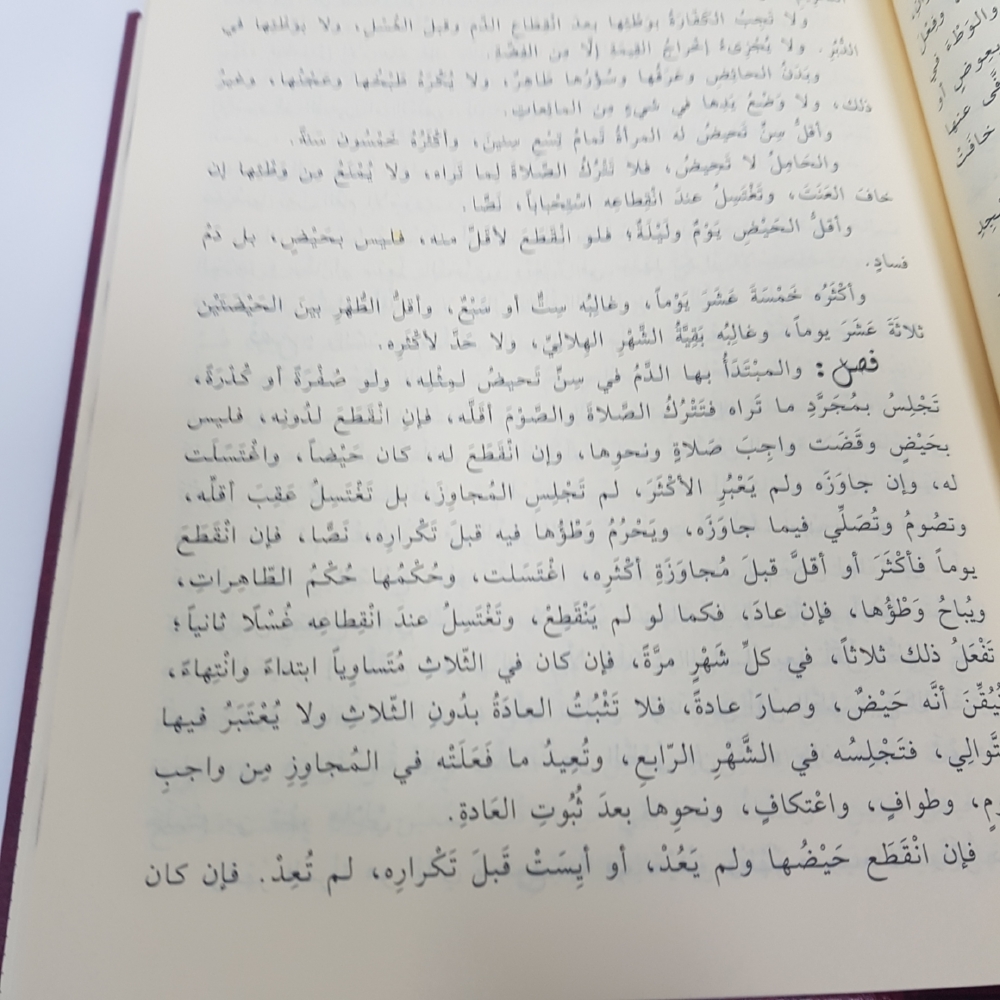 ولا تَجِبُ الكَفَّارَةُ بوَطْئِها بعدَ انْقِطاعِ الدَّمِ وقبلَ الغُسْلِ، ولا بوَطْئِها في
الدُّبُرِ. ولا يُجْزِىءُ إخْراجُ القِيمَةِ إلّا مِن الفِضَّةِ.
وبَدَنُ الحائِضِ وعَرَقُها وسُؤْرُها طاهِرٌ، ولا يُكْرَهُ طَبْخُها وعَجْنُها، وغيرُ
ذلك، ولا وَضْعُ يَدِها في شيءٍ مِن المائِعاتِ.
وأقلُّ سِنٍّ تَحِيضُ له المرأةُ تَمامُ تِسْعِ سِنينَ، وأكْثَرُهُ خَمْسُون سَنَةً.
والحَامِلُ لا تَحِيضُ، فلا تَتْرُكُ الصَّلاةَ لِما تَراه، ولا يُمْنَعُ مِن وَطْئِها إن
خافَ العَنَتَ، وتَغْتَسِلُ عندَ انْقِطاعِه اسْتِحْباباً، نَصًّا.
وأقلُّ الحَيْضِ يَوْمٌ ولَيْلَةٌ؛ فلو انْقَطَعَ لأقلَّ منه، فليس بحَيْضٍ، بل دَمُ
فسادٍ.
وأكْثَرُه خَمْسَةَ عَشَرَ يَوْماً، وغالِبُه سِتٌّ أو سَبْعٌ، وأقلُّ الطُّهْرِ بينَ الحَيْضَتَيْن
ثلاثَةَ عَشَرَ يوماً، وغالِبُه بَقِيَّةُ الشَّهْرِ الهِلاليِّ، ولا حَدَّ لأكْثَرِه.
فصل: والمبْتَدَأُ بها الدَّمُ في سِنٍّ تَحيضُ لمِثْلِه، ولو صُفْرَةً أو كُدْرَةً،
تَجْلِسُ بمُجَرَّدِ ما تَراه فتَتْرُكُ الصَّلاةَ والصَّوْمَ أقَلَّه، فإنِ انْقَطَعَ لدُونِه، فليس
بحَيْضٍ وقَضَت واجِبَ صَلاةٍ ونحوِها، وإن انْقَطَعَ له، كان حَيْضاً، واغْتَسَلَت
له، وإن جاوَزَه ولم يَعْبُرِ الأكْثَرَ، لم تَجْلِسِ المُجاوِزَ، بل تَغْتَسِلُ عَقِبَ أقَلِّه،
وتصُومُ وتُصَلِّي فيما جاوَزَه، ويَحْرُمُ وَطْؤُها فيه قبلَ تَكْرارِه، نَصًّا، فإن انْقَطَعَ
يوماً فأكْثَرَ أو أقلَّ قبلَ مُجاوَزَةِ أكْثَرِه، اغْتَسَلت، وحُكْمُها حُكْمُ الطّاهِراتِ،
ويُباحُ وَطْؤُها، فإن عادَ، فكما لو لم يَنْقَطِعْ، وتَغْتَسِلُ عندَ انْقِطاعِه غُسْلًا ثانياً؛
تَفْعَلُ ذلك ثلاثاً، في كلِّ شَهْرٍ مرَّةً، فإن كان في الثّلاثِ مُتَساوِياً ابتداءً وانْتِهاءً،
تُيُقِّنَ أنَّه حَيْضٌ، وصارَ عادةً، فلا تَثْبُتُ العادَةُ بدُونِ الثّلاثِ ولا يُعْتَبَرُ فيها
التَّوالي، فتَجْلِسُه في الشَّهْرِ الرّابعِ، وتُعِيدُ ما فَعَلَتْه في المُجاوِزِ مِن واجبِ
وطوافٍ، واعْتكافٍ، ونحوِها بعدَ ثُبُوتِ العَادةِ.
فإن انْقَطَع حَيْضُها ولم يَعُدْ، أو أيِسَتْ قَبلَ تَكْرارِه، لم تُعِدْ. فإن كان